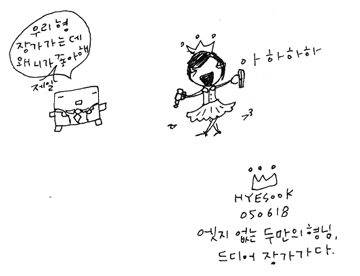 우리 형
장가가는데
왜 니가 좋아해
제일
아 하하하하
HYESOOK
050618
엣지 없는 두만의형님,
드디어 장가가다.